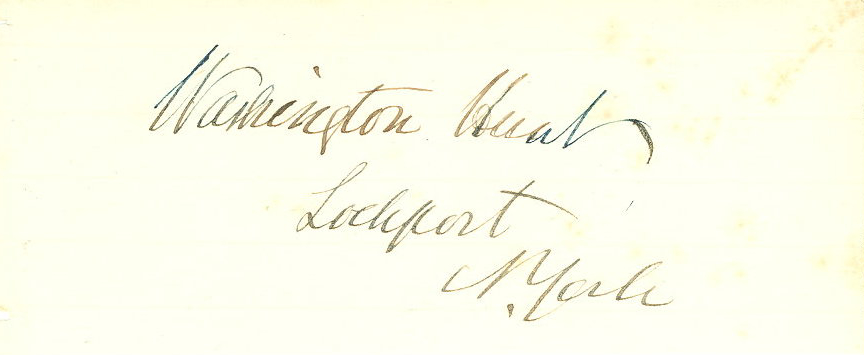 Washington Hunt
Lockport
N. York